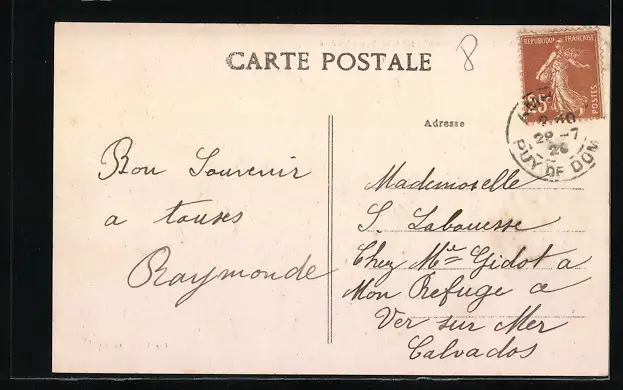 CARTE POSTALE
8
REPUBLIQUE FRANÇAISE
POSTES
25c
2 40
29 -7
26
PUY DE DOM
Adresse
Bon Souvenir
a toutes
Raymonde
Mademoselle
S. Labouesse
Chez Mme Gidot a
Mon Refuge a
Ver sur Mer
Calvados